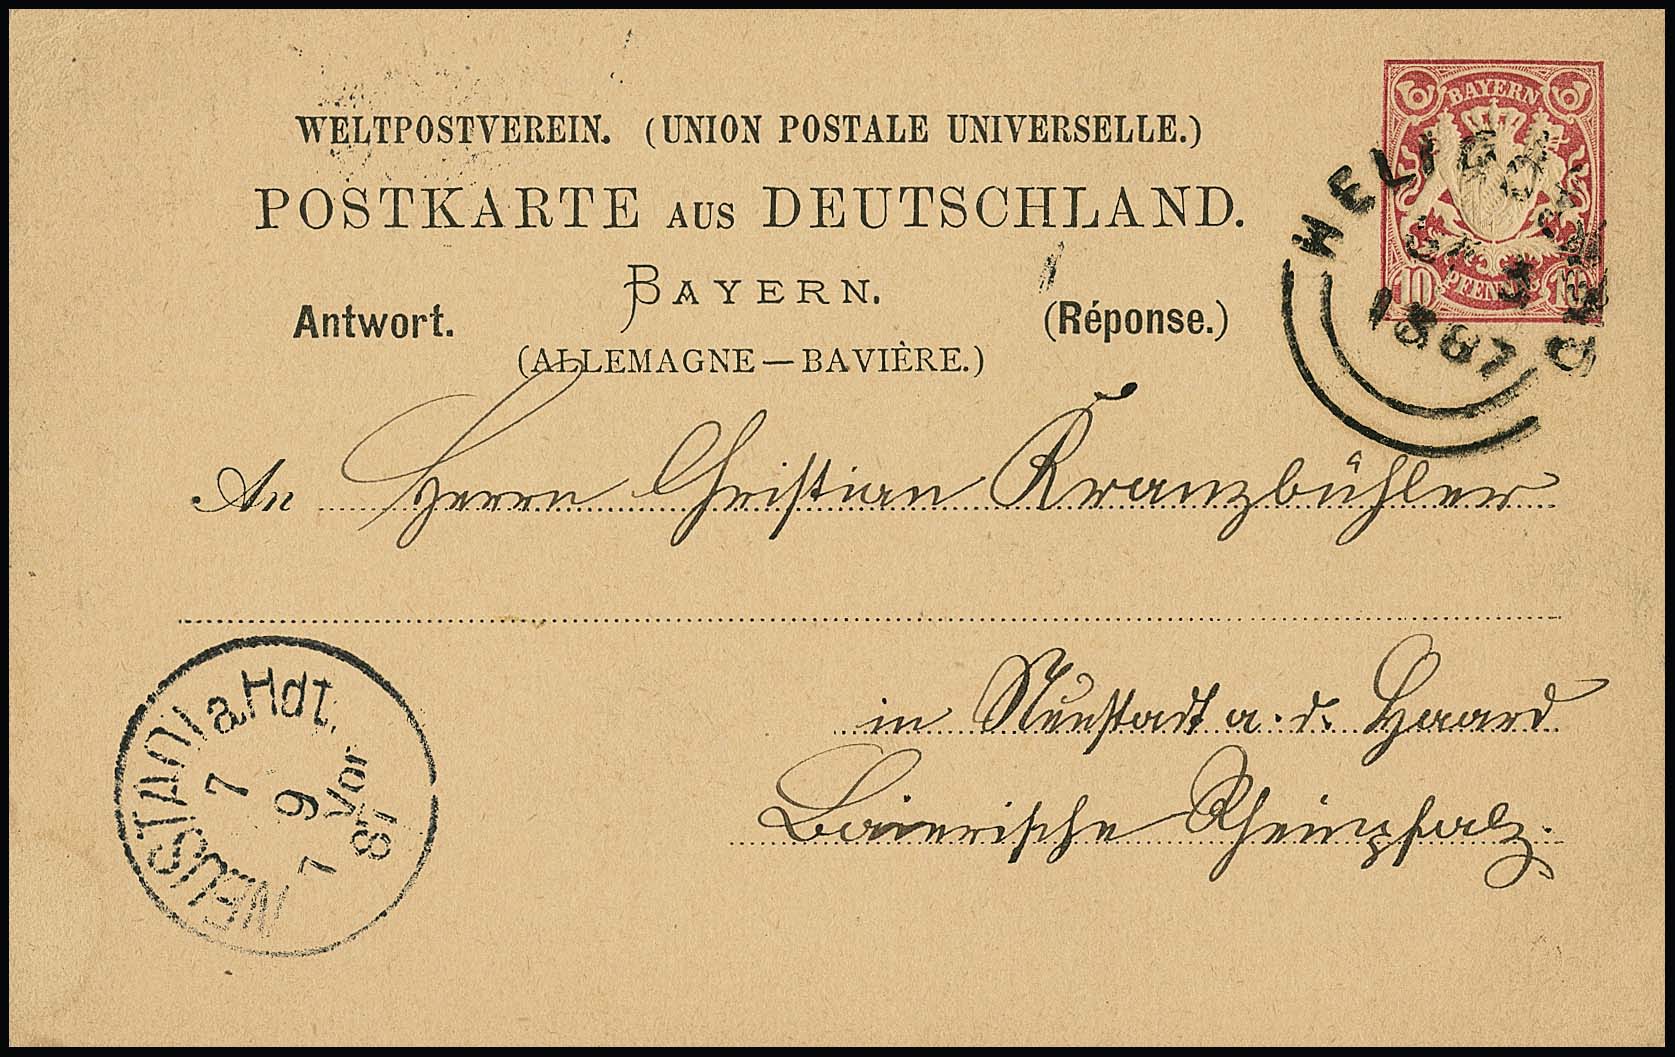 WELTPOSTVEREIN. (UNION POSTALE UNIVERSELLE.)
POSTKARTE AUS DEUTSCHLAND.
BAYERN.
Antwort. (Réponse.)
(ALLEMAGNE — BAVIÈRE.)
BAYERN
10 PFENNIG 10
HELIGOLAND
1887
An Herrn Christian Kranzbühler
in Neustadt a. d. Haard
Baierische Rheinpfalz.
NEUSTADT a Hdt.
7
9
Vor
87